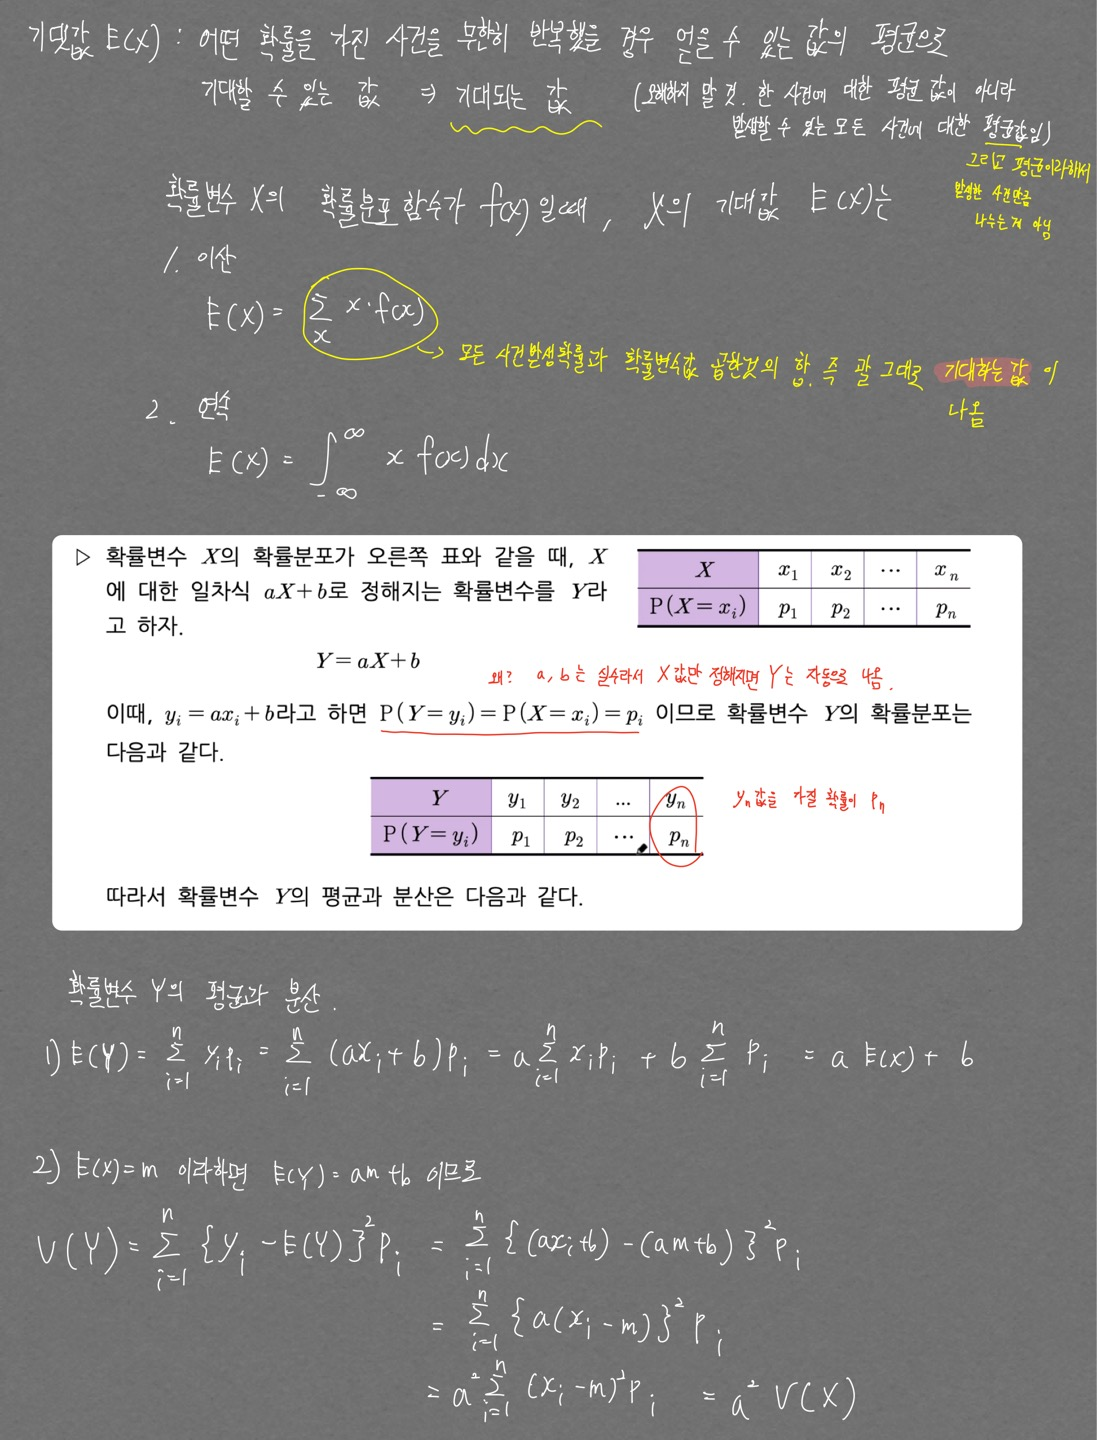 기댓값 E(X) : 어떤 확률을 가진 사건을 무한히 반복했을 경우 얻을 수 있는 값의 평균으로
기대할 수 있는 값 ⇒ 기대되는 값 (오해하지 말 것. 한 사건에 대한 평균 값이 아니라
발생할 수 있는 모든 사건에 대한 평균값임)
그리고 평균이라해서
발생한 사건만큼
나누는게 아님
확률변수 X의 확률분포 함수가 f(x) 일때, X의 기대값 E(X)는
1. 이산
E(X) = ∑_x x·f(x)
→ 모든 사건발생확률과 확률변수값 곱한것의 합. 즉 말 그대로 기대하는 값 이
나옴
2. 연속
E(X) = ∫_{-∞}^{∞} x f(x) dx
▷ 확률변수 X의 확률분포가 오른쪽 표와 같을 때, X
에 대한 일차식 aX+b로 정해지는 확률변수를 Y라
고 하자.
X x₁ x₂ ⋯ xₙ
P(X=xᵢ) p₁ p₂ ⋯ pₙ
Y=aX+b
왜? a, b는 실수라서 X값만 정해지면 Y는 자동으로 나옴.
이때, yᵢ=axᵢ+b라고 하면 P(Y=yᵢ)=P(X=xᵢ)=pᵢ 이므로 확률변수 Y의 확률분포는
다음과 같다.
Y y₁ y₂ ... yₙ
P(Y=yᵢ) p₁ p₂ ⋯ pₙ
yₙ값을 가질 확률이 pₙ
따라서 확률변수 Y의 평균과 분산은 다음과 같다.
확률변수 Y의 평균과 분산.
1) E(Y) = ∑_{i=1}^{n} yᵢpᵢ = ∑_{i=1}^{n} (axᵢ+b)pᵢ = a∑_{i=1}^{n} xᵢpᵢ + b∑_{i=1}^{n} pᵢ = a E(X) + b
2) E(X)=m 이라하면 E(Y)=am+b 이므로
V(Y) = ∑_{i=1}^{n} {yᵢ-E(Y)}²pᵢ = ∑_{i=1}^{n} {(axᵢ+b)-(am+b)}²pᵢ
= ∑_{i=1}^{n} {a(xᵢ-m)}²pᵢ
= a²∑_{i=1}^{n} (xᵢ-m)²pᵢ = a² V(X)